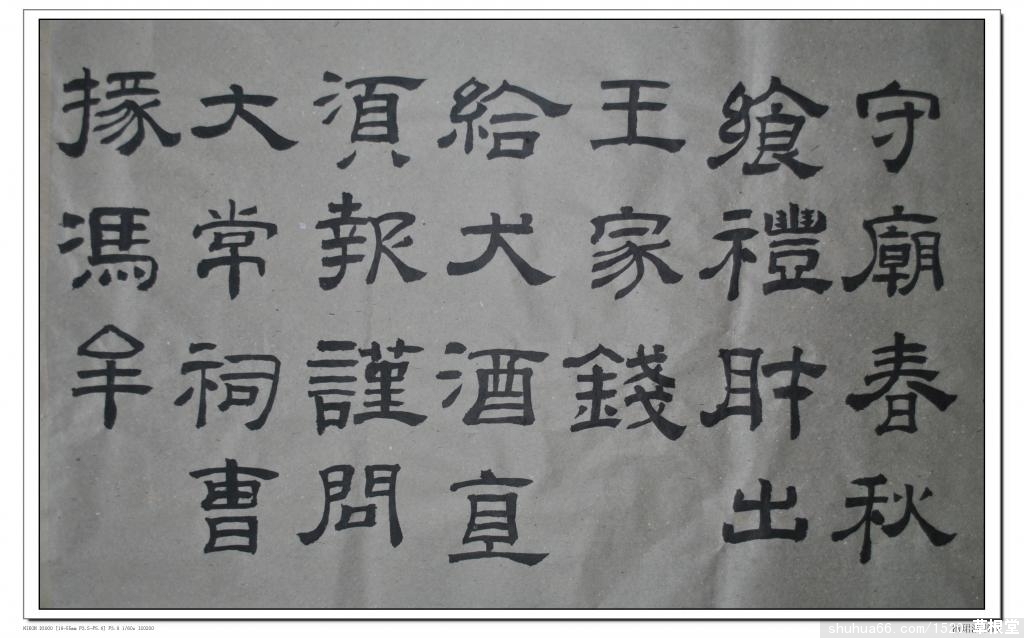 守廟春秋
飨禮財出
王家錢
給犬酒直
須報謹問
大常祠曹
掾馮牟
NIKON D5000 [18-55mm F3.5-F5.6] F5.6 1/60s ISO200
shuhua66.com/152
草根堂